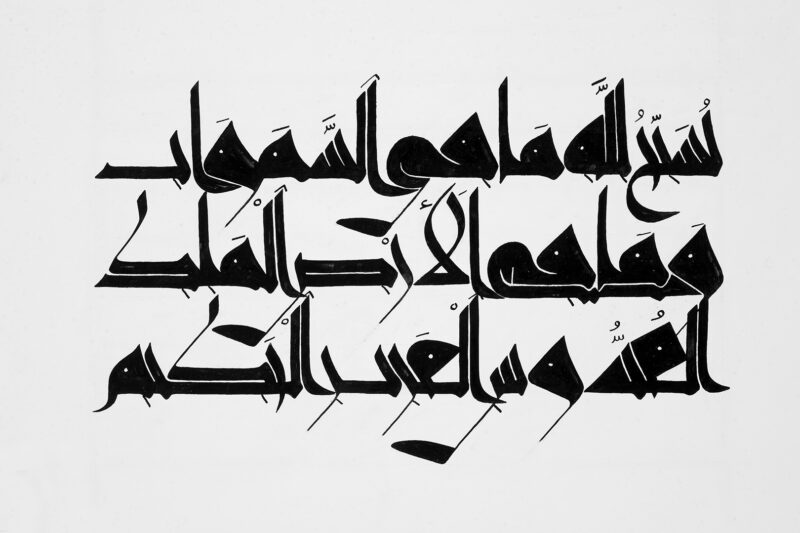 يُسَبِّحُ لِلَّهِ مَا فِي السَّمَوَاتِ
وَمَا فِي الْأَرْضِ الْمَلِكِ
الْقُدُّوسِ الْعَزِيزِ الْحَكِيمِ